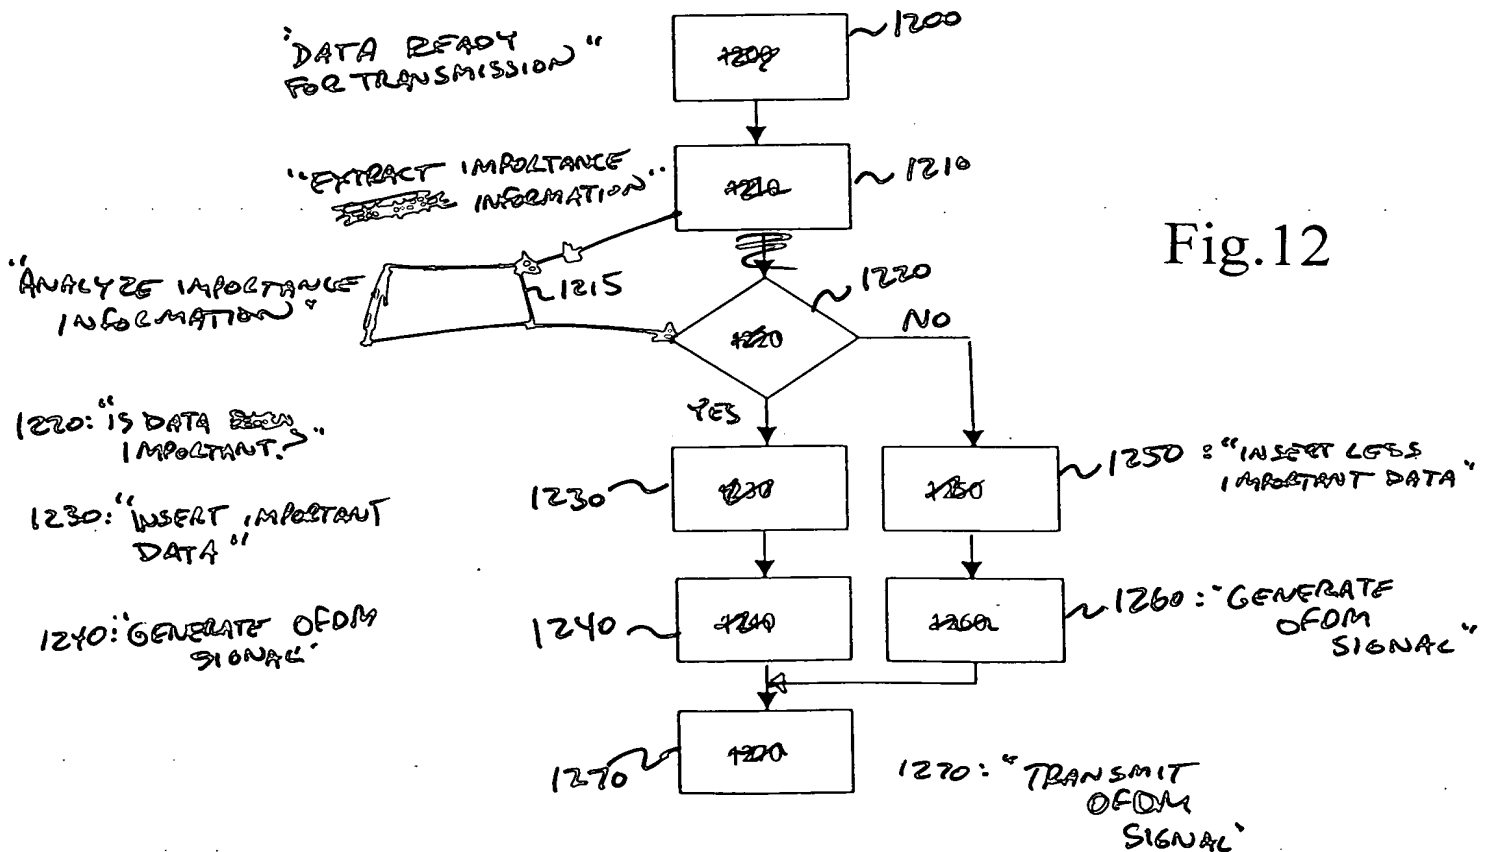 "DATA READY
FOR TRANSMISSION"
1200
1200
"EXTRACT IMPORTANCE
INFORMATION"
1210
1210
Fig.12
"ANALYZE IMPORTANCE
INFORMATION"
1215
1220
1220
NO
YES
1220: "IS DATA
IMPORTANT?"
1230: "INSERT IMPORTANT
DATA"
1230
1230
1250
1250 : "INSERT LESS
IMPORTANT DATA"
1240: "GENERATE OFDM
SIGNAL"
1240
1240
1260
1260 : "GENERATE
OFDM
SIGNAL"
1270
1270
1270: "TRANSMIT
OFDM
SIGNAL"